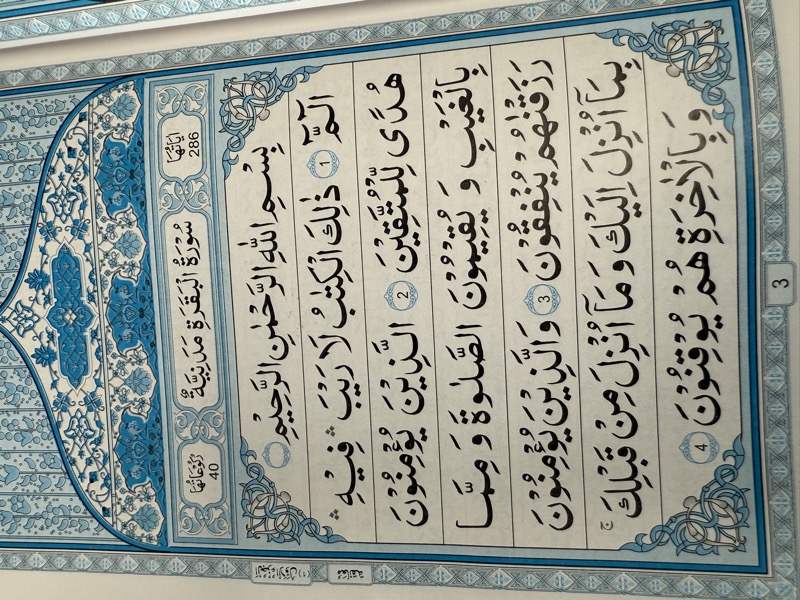 اٰيَاتُهَا
286
سُوْرَةُ الْبَقَرَةِ مَدَنِيَّةٌ
رُكُوْعَاتُهَا
40
بِسْمِ اللّٰهِ الرَّحْمٰنِ الرَّحِيْمِ
الٓمّٓ 1 ذٰلِكَ الْكِتٰبُ لَا رَيْبَ ۛ فِيْهِ ۛ
هُدًى لِّلْمُتَّقِيْنَ 2 الَّذِيْنَ يُؤْمِنُوْنَ
بِالْغَيْبِ وَ يُقِيْمُوْنَ الصَّلٰوةَ وَ مِمَّا
رَزَقْنٰهُمْ يُنْفِقُوْنَ 3 وَ الَّذِيْنَ يُؤْمِنُوْنَ
بِمَآ اُنْزِلَ اِلَيْكَ وَ مَآ اُنْزِلَ مِنْ قَبْلِكَ ۚ
وَ بِالْاٰخِرَةِ هُمْ يُوْقِنُوْنَ 4
3
معانقة